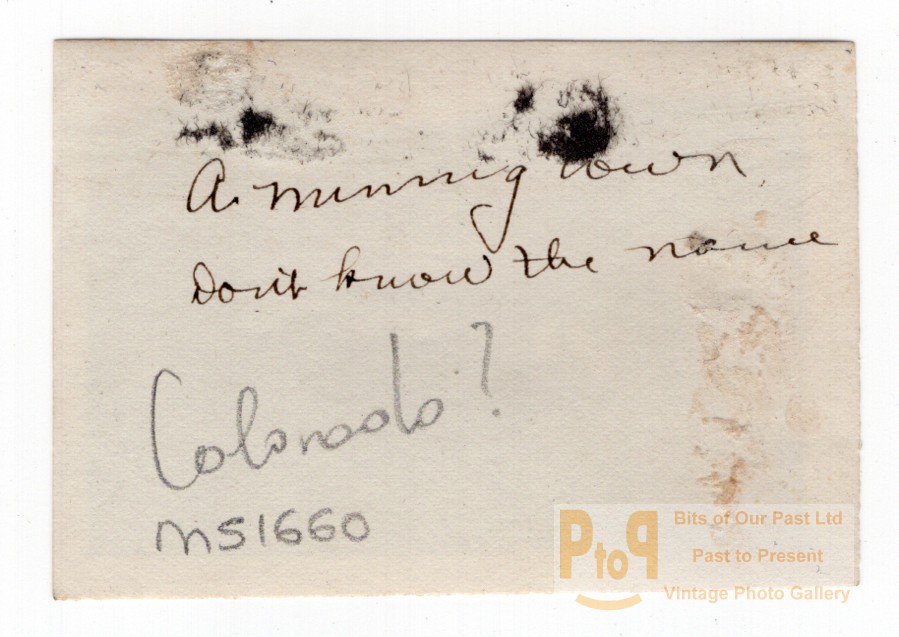 A. Minning town
Don't know the name
Colorado?
MS1660
PtoP
Bits of Our Past Ltd
Past to Present
Vintage Photo Gallery